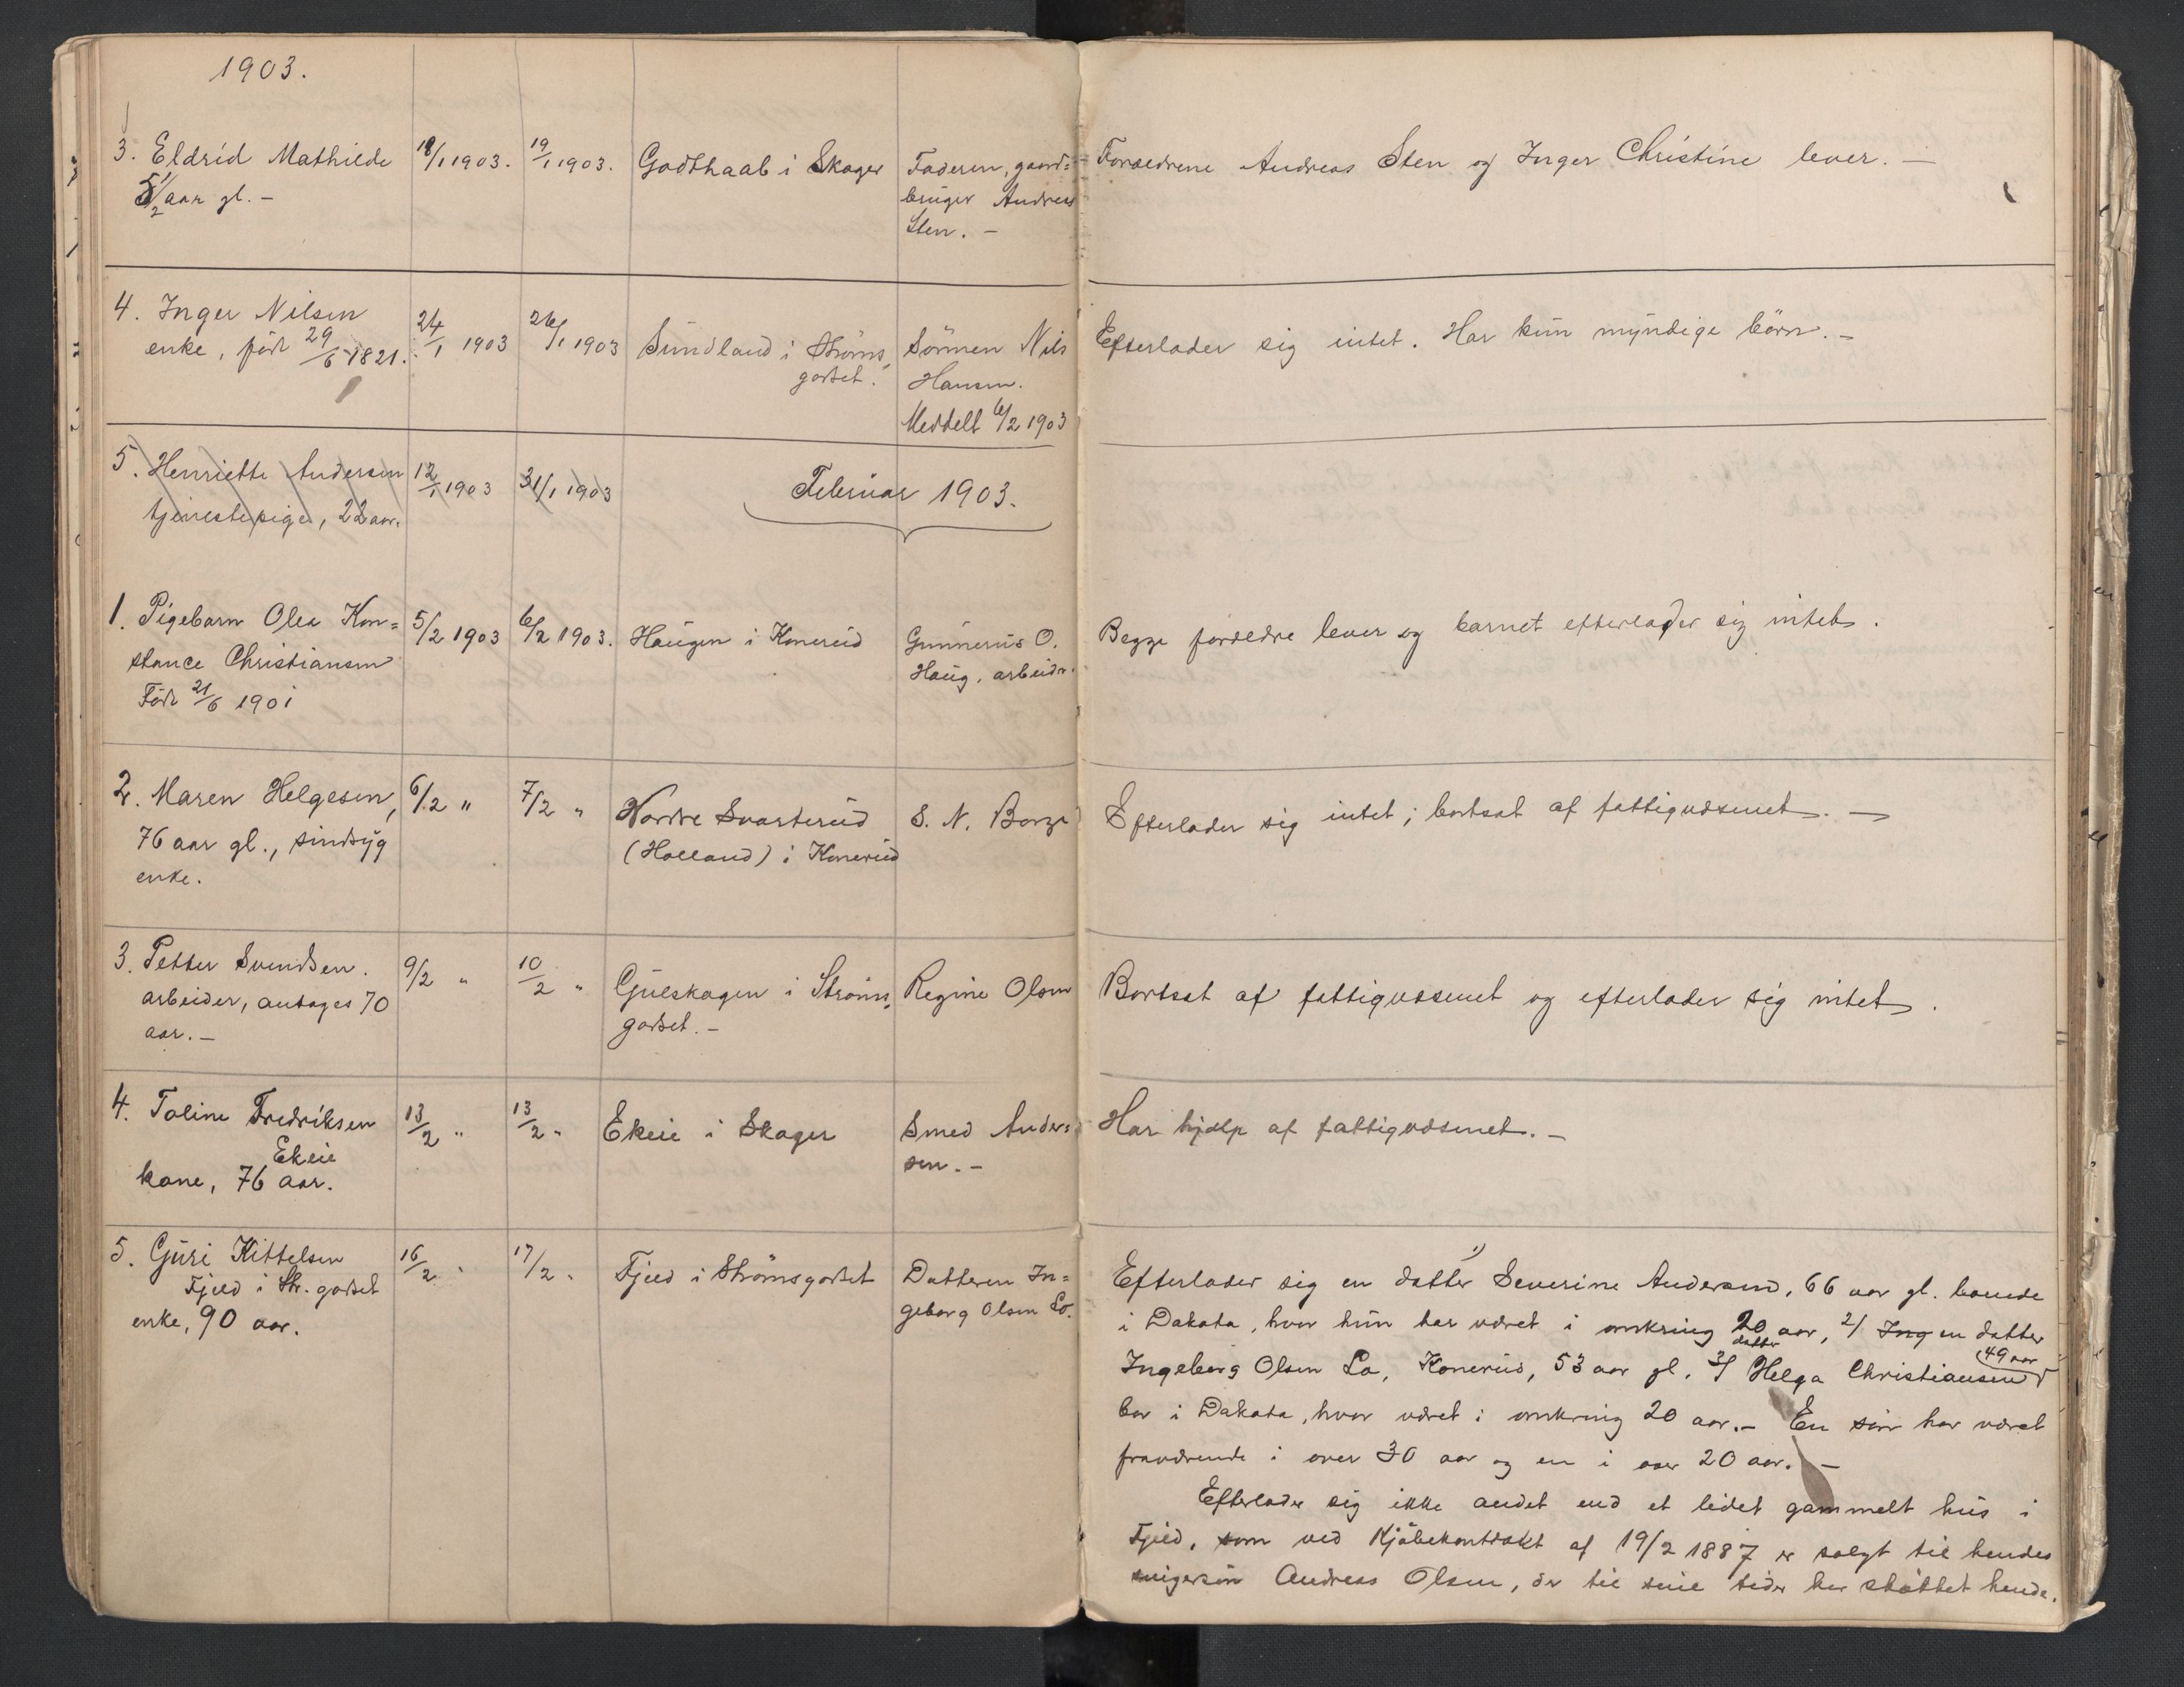 1903.
3. Eldrid Mathilde 18/1 1903. 19/1 1903. Godthaab i Skoger Faderen, gaard= Forældrene Andreas Sten og Inger Christine lever. —
5 1/2 aar gl. — bruger Andreas
Sten. —
4. Inger Nilsen 24/1 1903 26/1 1903 Sundland i Ströms Sönnen Nils Efterlader sig intet. Har kun myndige börn. —
enke, född 29/6 1821. godset. Hansen.
Meddelt 6/2 1903
5. Henriette Andersen 12/1 1903 31/1 1903
tjenestepige, 22 aar.
Februar 1903.
1. Pigebarn Olea Kon= 5/2 1903 6/2 1903. Haugen i Konerud Gunnerius O. Begge forældre lever og barnet efterlader sig intet.
stance Christiansen Haug, arbeider.
Föd 21/6 1901
2. Maren Helgesen, 6/2 " 7/2 " Nordre Svarterud S. N. Borge Efterlader sig intet; bortsat af fattigvæsenet. —
76 aar gl., sindsyg (Holland) i Konerud
enke.
3. Petter Svendsen. 9/2 " 10/2 " Gulskogen i Ströms Regine Olsen Bortsat af fattigvæsenet og efterlader sig intet.
arbeider, antages 70 godset. —
aar. —
4. Toline Fredriksen 13/2 " 13/2 " Ekeie i Skoger Smed Ander= Har hjælp af fattigvæsenet. —
Ekeie sen. —
kone, 76 aar.
5. Guri Kittelsen 16/2 " 17/2 " Fjeld i Strömsgodset Datteren In=
Fjeld i Str. godset geborg Olsen Lo.
enke, 90 aar.
Efterlader sig en datter 1) Severine Andersen, 66 aar gl. boende
i Dakota, hvor hun har været i omkring 20 aar, 2/ Ing en datter
Ingeborg Olsen Lo, Konerud, 53 aar gl. 3/ datter Helga Christiansen (49 aar
bor i Dakota, hvor været i omkring 20 aar. — En sön har været
fraværende i over 30 aar og en i over 20 aar. —
Efterlader sig ikke andet end et lidet gammelt hus i
Fjeld, som ved Kjöbekontrakt af 19/2 1887 er solgt til hendes
svigersön Andreas Olsen, der til sine tider har stöttet hende.